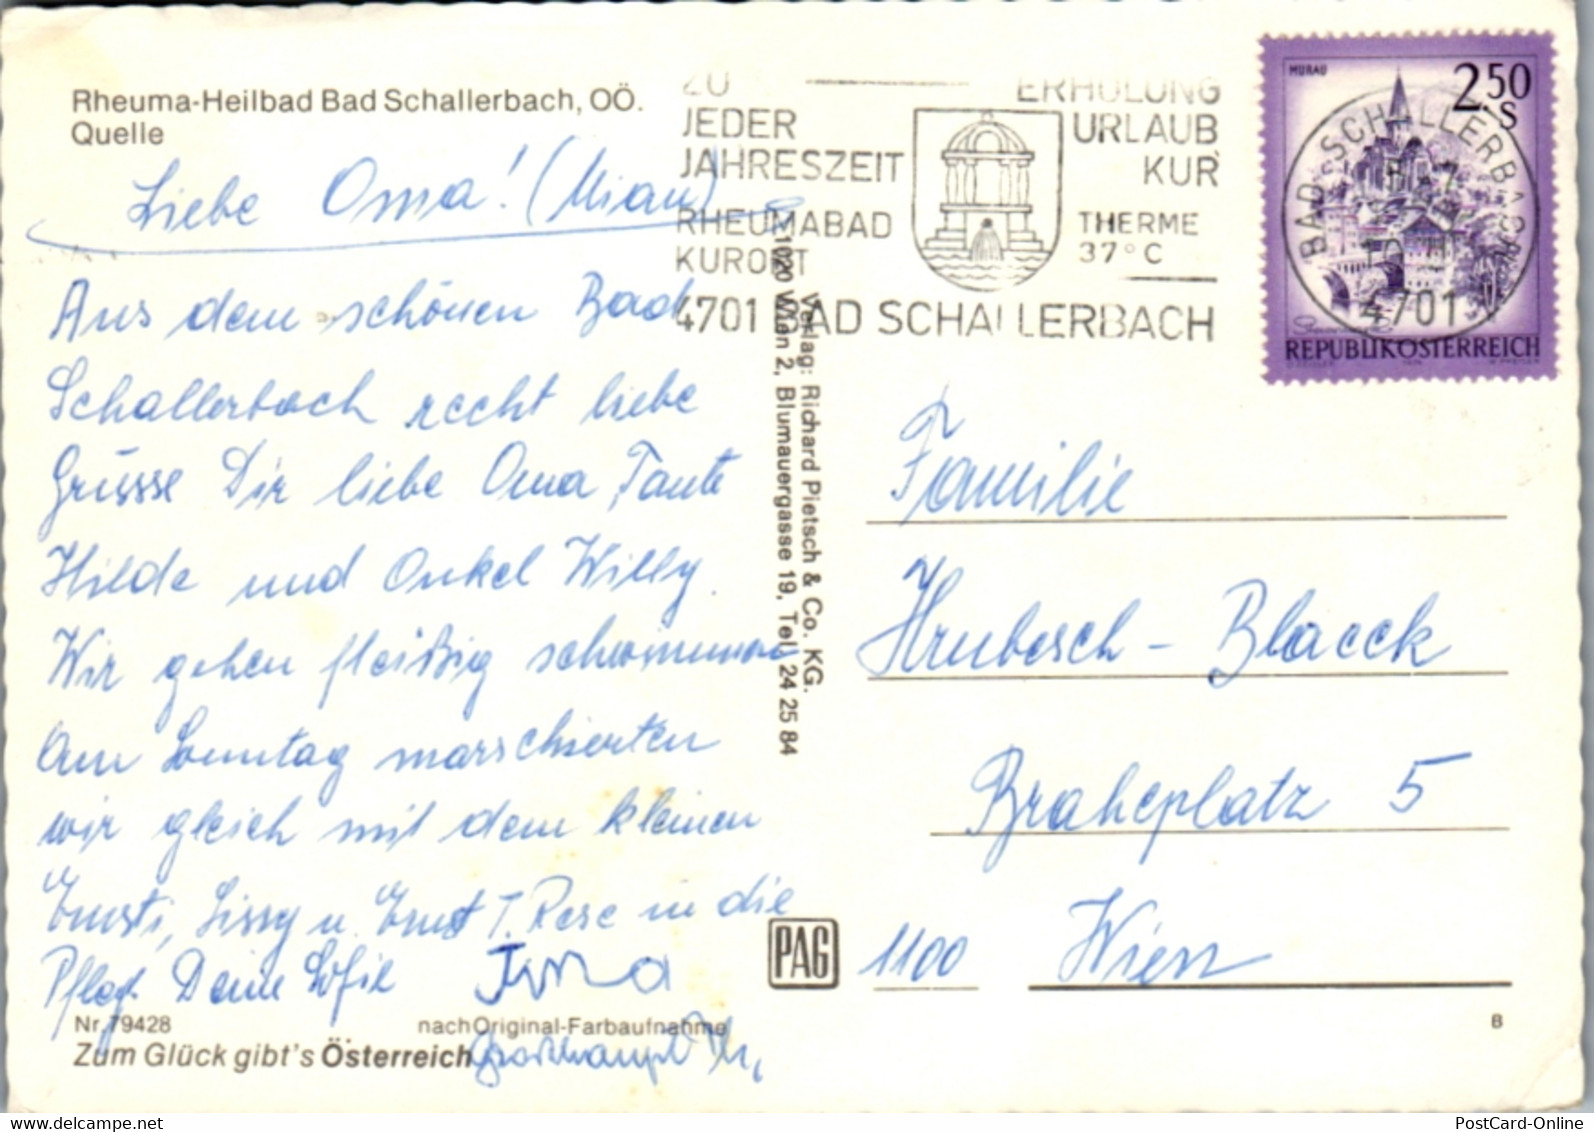 Rheuma-Heilbad Bad Schallerbach, OÖ.
Quelle
Liebe Oma! (Mian)
Aus dem schönen Bad
Schallerbach recht liebe
Grüsse Dir liebe Oma, Tante
Hilde und Onkel Willy.
Wir gehen fleißig schwimmen
Am Sonntag marschierten
wir gleich mit dem kleinen
Ernsti, Sissy u. Ernst T. Rese in die
Pflegt. Deine Sofie
Irma
Nr. 79428
nach Original-Farbaufnahme
Zum Glück gibt's Österreich
Verlag: Richard Pietsch & Co. KG.
1020 Wien 2, Blumauergasse 19, Tel. 24 25 84
PAG
ZU
JEDER
JAHRESZEIT
RHEUMABAD
KURORT
ERHOLUNG
URLAUB
KUR
THERME
37° C
4701 BAD SCHALLERBACH
MURAU
2.50
S
REPUBLIK ÖSTERREICH
BAD SCHALLERBACH
4701
Familie
Hrubesch - Blaeck
Braheplatz 5
1100 Wien
B
PostCard-Online